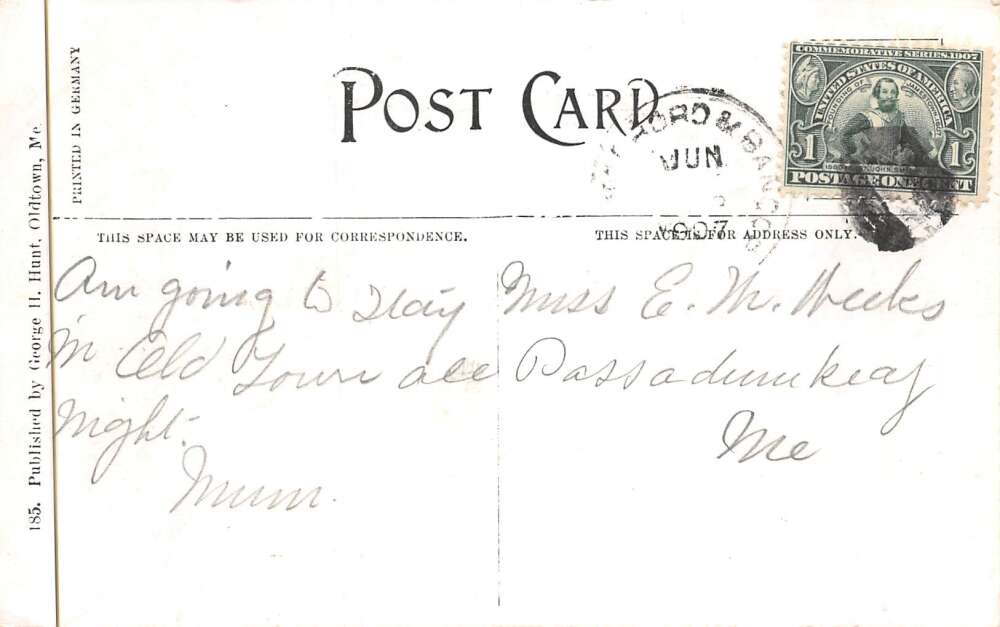 185. Published by George H. Hunt, Oldtown, Me.
PRINTED IN GERMANY
POST CARD
JUN
1907
COMMEMORATIVE SERIES 1907
UNITED STATES OF AMERICA
FOUNDING OF JAMESTOWN
1 1
POSTAGE ONE CENT
THIS SPACE MAY BE USED FOR CORRESPONDENCE.
THIS SPACE IS FOR ADDRESS ONLY.
Am going to stay
in Old Town all
night.
Mum.
Miss E. M. Weeks
Passadumkeag
Me